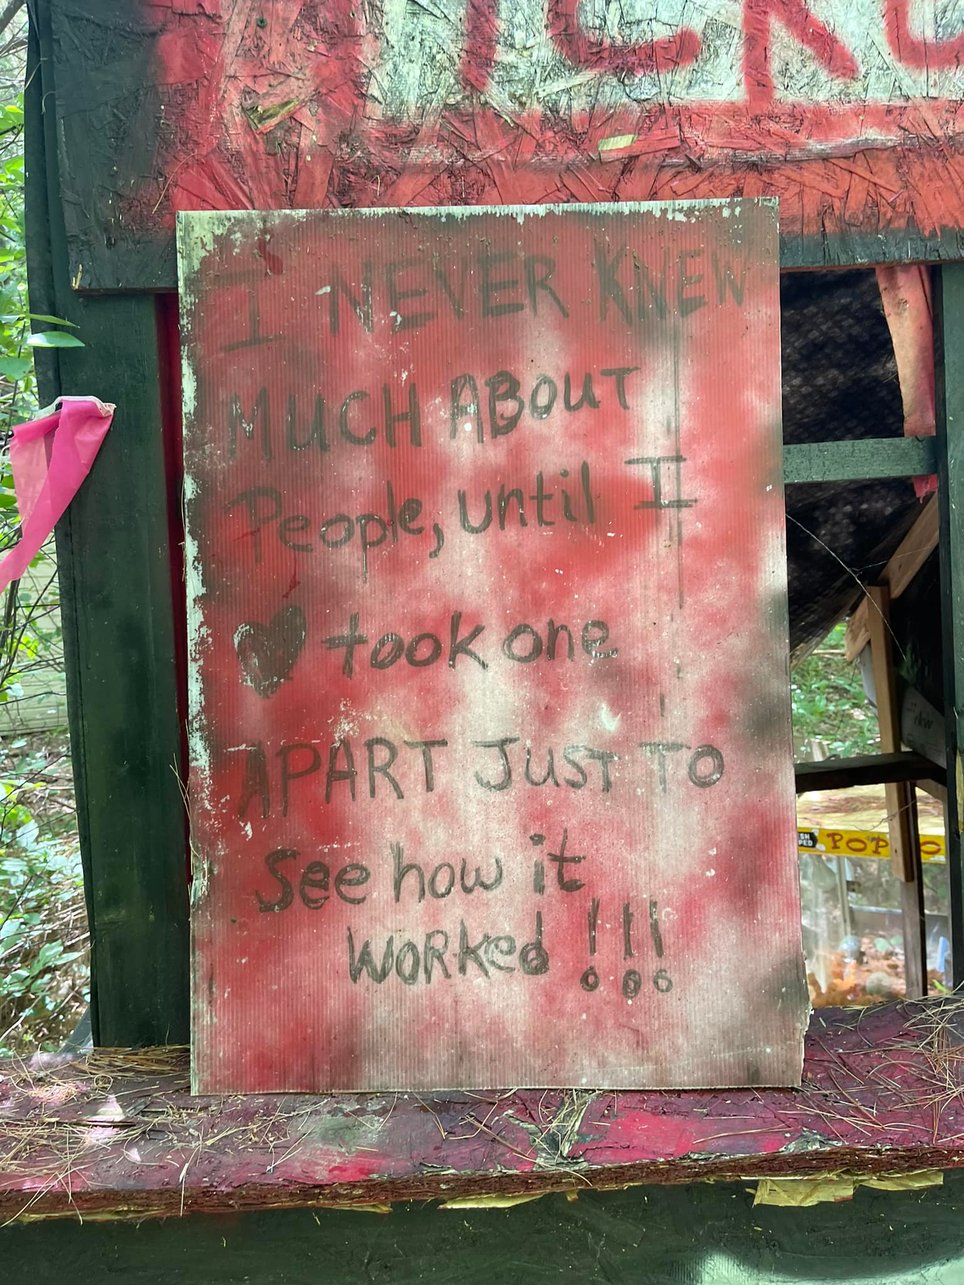 I NEVER KNEW
MUCH ABOUT
People, until I
took one
APART JUST TO
See how it
WORKed !!!
POP